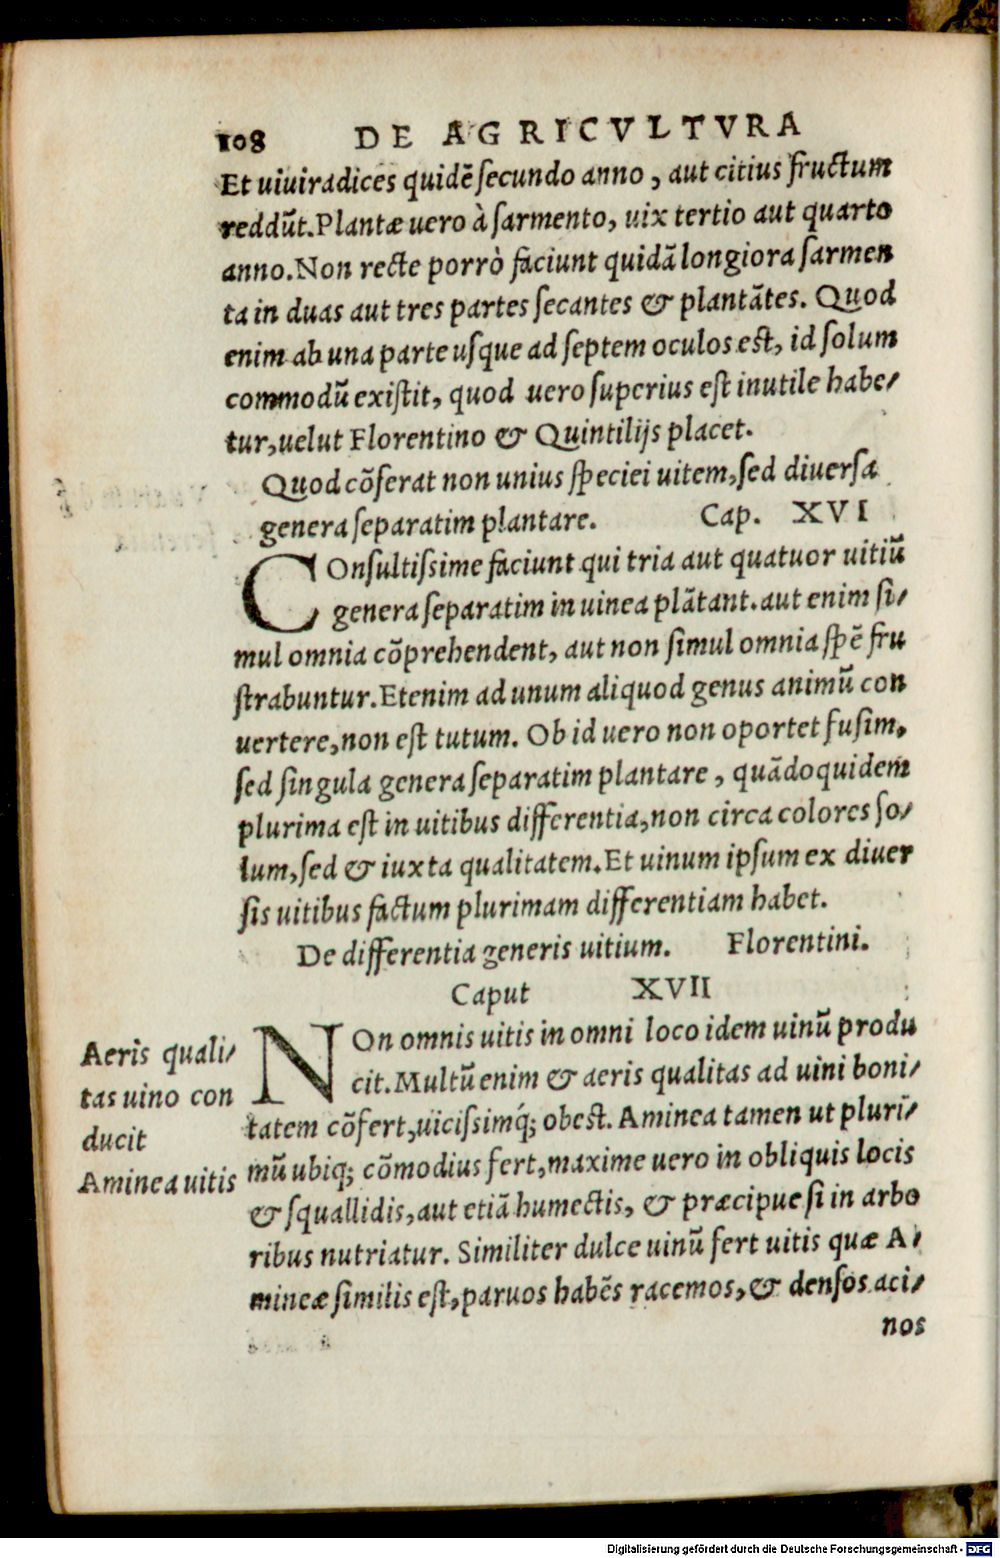 108 DE AGRICVLTVRA
Et uiuiradices quidē secundo anno, aut citius fructum
reddūt. Plantæ uero à sarmento, uix tertio aut quarto
anno. Non recte porrò faciunt quidã longiora sarmen
ta in duas aut tres partes secantes & plantãtes. Quod
enim ab una parte usque ad septem oculos est, id solum
commodū existit, quod uero superius est inutile habe-
tur, uelut Florentino & Quintilijs placet.
Quod cõferat non unius speciei uitem, sed diuersa
genera separatim plantare. Cap. XVI
COnsultissime faciunt qui tria aut quatuor uitiū
genera separatim in uinea plãtant. aut enim si-
mul omnia cõprehendent, aut non simul omnia spē fru
strabuntur. Etenim ad unum aliquod genus animū con
uertere, non est tutum. Ob id uero non oportet fusim,
sed singula genera separatim plantare, quãdoquidem
plurima est in uitibus differentia, non circa colores so-
lum, sed & iuxta qualitatem. Et uinum ipsum ex diuer
sis uitibus factum plurimam differentiam habet.
De differentia generis uitium. Florentini.
Caput XVII
NOn omnis uitis in omni loco idem uinū produ
cit. Multū enim & aeris qualitas ad uini boni-
tatem cõfert, uicissimq́; obest. Aminea tamen ut pluri-
mū ubiq; cõmodius fert, maxime uero in obliquis locis
& squallidis, aut etiã humectis, & præcipue si in arbo
ribus nutriatur. Similiter dulce uinū fert uitis quæ A-
mineæ similis est, paruos habēs racemos, & densos aci-
nos
Aeris quali-
tas uino con
ducit
Aminea uitis
Digitalisierung gefördert durch die Deutsche Forschungsgemeinschaft - DFG